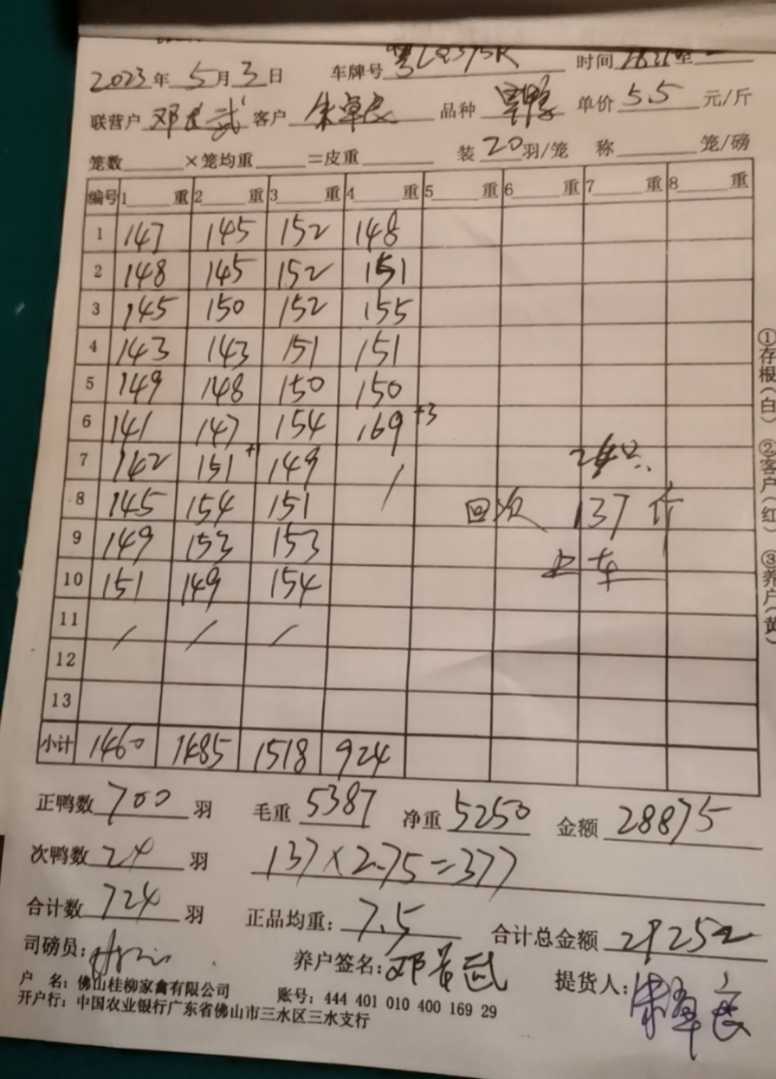 2023年 5月3日 车牌号 时间 至
联营户 邓 武 客户 朱卓良 品种 单价 5.5 元/斤
笼数 ×笼均重 =皮重 装 20 羽/笼 称 笼/磅
编号 1 重 2 重 3 重 4 重 5 重 6 重 7 重 8 重
1 147 145 152 148
2 148 145 152 151
3 145 150 152 155
4 143 143 151 151
5 149 148 150 150
6 141 147 154 169 +3
7 142 151 +1 149 /
8 145 154 151
9 149 153 153
10 151 149 154
11 / / /
12
13
24只
回次 137斤
上车
小计 1460 1485 1518 924
正鸭数 700 羽 毛重 5387 净重 5250 金额 28875
次鸭数 24 羽 137×2.75=377
合计数 724 羽 正品均重: 7.5 合计总金额 29252
司磅员: 养户签名: 邓 武 提货人: 朱卓良
户 名: 佛山桂柳家禽有限公司 账号: 444 401 010 400 169 29
开户行: 中国农业银行广东省佛山市三水区三水支行
①存根(白) ②客户(红) ③养户(黄)